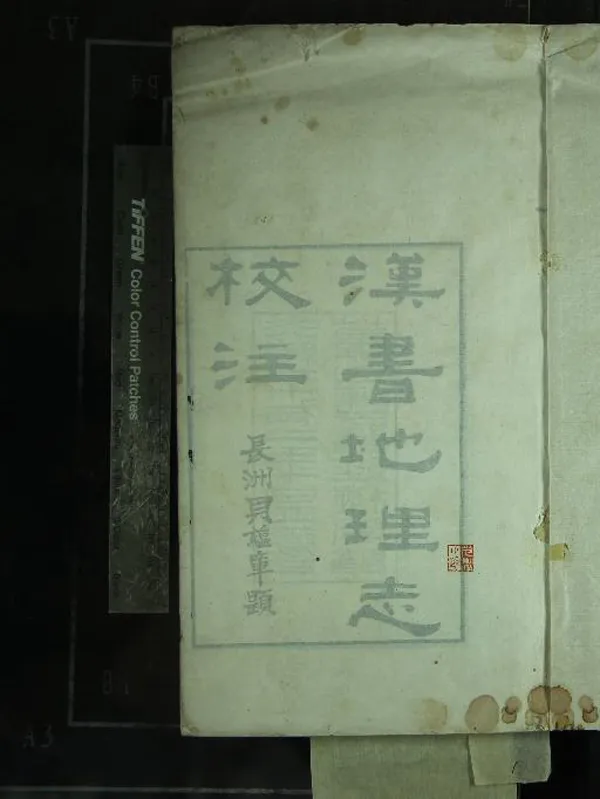 漢書地理志
校注
長洲貝墉車題
TIFFEN Color Control Patches
A3
B4
A3